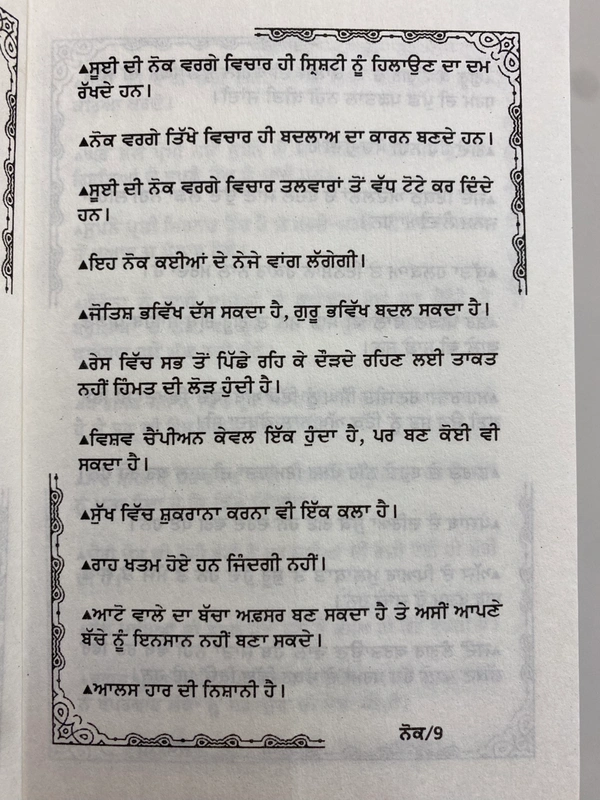 ▲ਸੂਈ ਦੀ ਨੋਕ ਵਰਗੇ ਵਿਚਾਰ ਹੀ ਸ੍ਰਿਸ਼ਟੀ ਨੂੰ ਹਿਲਾਉਣ ਦਾ ਦਮ
ਰੱਖਦੇ ਹਨ।
▲ਨੋਕ ਵਰਗੇ ਤਿੱਖੇ ਵਿਚਾਰ ਹੀ ਬਦਲਾਅ ਦਾ ਕਾਰਨ ਬਣਦੇ ਹਨ।
▲ਸੂਈ ਦੀ ਨੋਕ ਵਰਗੇ ਵਿਚਾਰ ਤਲਵਾਰਾਂ ਤੋਂ ਵੱਧ ਟੋਟੇ ਕਰ ਦਿੰਦੇ
ਹਨ।
▲ਇਹ ਨੋਕ ਕਈਆਂ ਦੇ ਨੇਜੇ ਵਾਂਗ ਲੱਗੇਗੀ।
▲ਜੋਤਿਸ਼ ਭਵਿੱਖ ਦੱਸ ਸਕਦਾ ਹੈ, ਗੁਰੂ ਭਵਿੱਖ ਬਦਲ ਸਕਦਾ ਹੈ।
▲ਰੇਸ ਵਿੱਚ ਸਭ ਤੋਂ ਪਿੱਛੇ ਰਹਿ ਕੇ ਦੌੜਦੇ ਰਹਿਣ ਲਈ ਤਾਕਤ
ਨਹੀਂ ਹਿੰਮਤ ਦੀ ਲੋੜ ਹੁੰਦੀ ਹੈ।
▲ਵਿਸ਼ਵ ਚੈਂਪੀਅਨ ਕੇਵਲ ਇੱਕ ਹੁੰਦਾ ਹੈ, ਪਰ ਬਣ ਕੋਈ ਵੀ
ਸਕਦਾ ਹੈ।
▲ਸੁੱਖ ਵਿੱਚ ਸ਼ੁਕਰਾਨਾ ਕਰਨਾ ਵੀ ਇੱਕ ਕਲਾ ਹੈ।
▲ਰਾਹ ਖਤਮ ਹੋਏ ਹਨ ਜਿੰਦਗੀ ਨਹੀਂ।
▲ਆਟੋ ਵਾਲੇ ਦਾ ਬੱਚਾ ਅਫ਼ਸਰ ਬਣ ਸਕਦਾ ਹੈ ਤੇ ਅਸੀਂ ਆਪਣੇ
ਬੱਚੇ ਨੂੰ ਇਨਸਾਨ ਨਹੀਂ ਬਣਾ ਸਕਦੇ।
▲ਆਲਸ ਹਾਰ ਦੀ ਨਿਸ਼ਾਨੀ ਹੈ।
ਨੋਕ/9